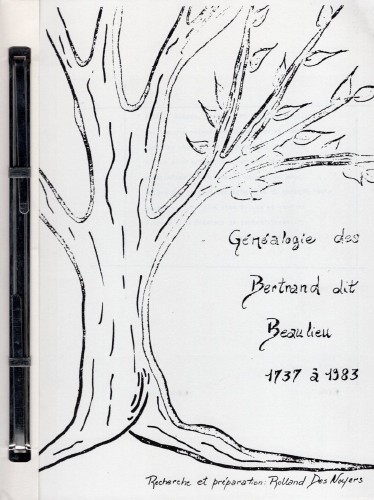 Généalogie des
Bertrand dit
Beaulieu
1737 à 1983
Recherche et préparation: Rolland Des Noyers